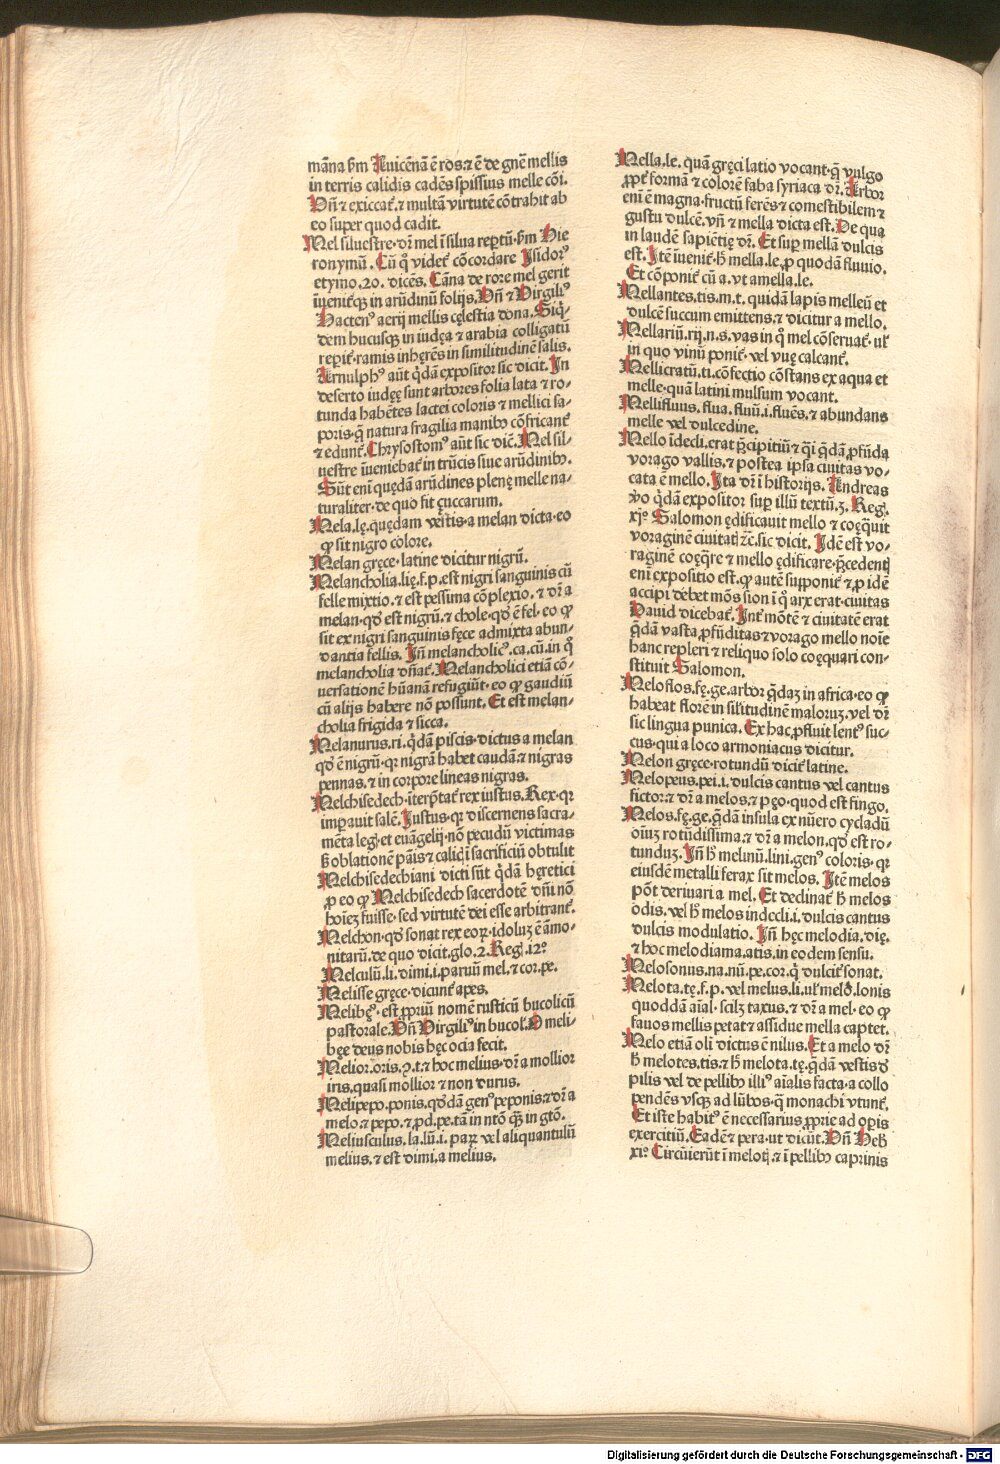 mãna ẜm Auicẽnã ẽ ros.⁊ ẽ de gnẽ mellis
in terris calidis cadẽs spissius melle cõi.
Vñ ⁊ exiccat᷑.⁊ multã virtutẽ cõtrahit ab
eo super quod cadit.
Mel siluestre.dr̃ mel ĩ silua rep̲tũ.ẜm Hie
ronymũ. Cũ q̊ videt᷑ cõcordare Isidorꝰ
etymo.20. dicẽs. Cãna de rore mel gerit
ĩuenit᷑qꝫ in arũdinũ folijs. Vñ ⁊ Virgiliꝰ
Hactenꝰ aerij mellis cęlestia dona. Siq̇-
dem hucusqꝫ in iudęa ⁊ arabia colligatũ
rep̲it᷑.ramis inhęrẽs in similitudinẽ salis.
Arnulphꝰ aũt q̇dã expositor sic dicit. In
deserto iudęę sunt arbores folia lata ⁊ ro-
tunda habẽtes lactei coloris ⁊ mellici sa-
poris.q̃ natura fragilia manibꝰ cõfricant᷑
⁊ edunt᷑. Chrysostomꝰ aũt sic dic̃. Mel sil-
uestre ĩueniebat᷑ in trũcis siue arũdinibꝰ.
Sũt enĩ quędã arũdines plenę melle na-
turaliter.de quo fit çuccarum.
Mela.lę.quędam vestis.a melan dicta.eo
ꝙ sit nigro colore.
Melan gręce.latine dicitur nigrũ.
Melancholia.lię.f.p.est nigri sanguinis cũ
felle mixtio.⁊ est pessima cõplexio.⁊ dr̃ a
melan.qḋ est nigrũ.⁊ chole.qḋ ẽ fel.eo ꝙ
sit ex nigri sanguinis fęce admixta abun-
dantia fellis. Iñ melancholicꝰ.ca.cũ.in q̊
melancholia dñat᷑. Melancholici etiã cõ-
uersationẽ hũanã refugiũt.eo ꝙ gaudiũ
cũ alijs habere nõ possunt. Et est melan-
cholia frigida ⁊ sicca.
Melanurus.ri.q̇dã piscis.dictus a melan
qḋ ẽ nigrũ.qꝛ nigrã habet caudã.⁊ nigras
pennas.⁊ in corpore lineas nigras.
Melchisedech.iterp̃tat᷑ rex iustus. Rex.qꝛ
imp̲auit salẽ. Iustus.qꝛ discernens sacra-
mẽta leg̃.et euãgelij.nõ pecudũ victimas
ß oblationẽ pãis ⁊ calicĩ sacrificiũ obtulit
Melchisedechiani dicti sũt q̇dã hęretici
ꝓ eo ꝙ Melchisedech sacerdotẽ dñi nõ
hoĩeꝫ fuisse.sed virtutẽ dei esse arbitrant᷑.
Melchon.qḋ sonat rex eoꝝ.idoluꝫ ẽ ãmo-
nitarũ.de quo dicit.glo.2. Reg̃.12º
Melculũ.li.dimi.i.paruũ mel.⁊ cor.pe.
Melisse gręce.dicunt᷑ apes.
Melibęꝰ.est ꝓpriũ nomẽ rusticũ bucolicũ
pastorale. Vñ Virgiliꝰ in bucol̃. O meli-
bęe deus nobis hęc ocia fecit.
Melior.oris.ꝯ.t.⁊ hoc melius.dr̃ a mollior
iris.quasi mollior ⁊ non durus.
Melipepo.ponis.qḋdã genꝰ peponis.⁊ dr̃ a
melo.⁊ pepo.⁊ ꝓd.pe.tã in ntõ q̃ꝫ in gtõ.
Meliusculus.la.lũ.i. paꝝ vel aliquantulũ
melius.⁊ est dimi.a melius.
Mella.le. quã gręci latio vocant.q̃ vulgo
ꝓpt᷑ formã ⁊ colorẽ faba syriaca dr̃. Arbor
enĩ ẽ magna.fructũ ferẽs ⁊ comestibilem ⁊
gustu dulcẽ.vñ ⁊ mella dicta est. De qua
in laudẽ sapiẽtię dr̃. Et sup̲ mellã dulcis
est. Itẽ ĩuenit᷑.ħ mella.le.ꝓ quodã fluuio.
Et cõponit᷑ cũ a.vt amella.le.
Mellantes.tis.m.t. quidã lapis melleũ et
dulcẽ succum emittens.⁊ dicitur a mello.
Mellariũ.rij.n.s.vas in q̊ mel cõseruat᷑.uł
in quo vinũ ponit᷑.vel vuę calcant᷑.
Mellicratũ.ti.cõfectio cõstans ex aqua et
melle.quã latini mulsum vocant.
Mellifluus.flua.fluũ.i.fluẽs.⁊ abundans
melle vel dulcedine.
Mello ĩdecli.erat p̃cipitiũ ⁊ q̃i q̃dã ꝓfũda
vorago vallis.⁊ postea ipsa ciuitas vo-
cata ẽ mello. Ita dr̃ ĩ historijs. Andreas
v̊o q̇dã expositor sup̲ illũ textũ.3. Reg̃.
xjº Salomon ędificauit mello ⁊ coęq̃uit
voraginẽ ciuitatĩ ⁊c̃.sic dicit. Idẽ est vo-
raginẽ coęq̃re ⁊ mello ędificare.p̃cedenti
enĩ expositio est.ꝙ autẽ supponit᷑ ⁊ ꝓ idẽ
accipi debet mõs sion ĩ q̊ arx erat.ciuitas
Dauid dicebat᷑. Int᷑ mõtẽ ⁊ ciuitatẽ erat
q̃dã vasta ꝓfũditas ⁊ vorago mello noĩe
hanc repleri ⁊ reliquo solo coęquari con-
stituit Salomon.
Meloflos.fę.ge.arbor q̃daꝫ in africa.eo ꝙ
habeat florẽ in sil̃itudinẽ maloruꝫ.vel dr̃
sic lingua punica. Ex hac ꝓfluit lentꝰ suc-
cus.qui a loco armoniacus dicitur.
Melon gręce.rotundũ dicit᷑ latine.
Melopeus.pei.i.dulcis cantus vel cantus
fictor.⁊ dr̃ a melos.⁊ pęo.quod est fingo.
Melos.fę.ge.q̃dã insula ex nũero cycladũ
oĩuꝫ rotũdissima.⁊ dr̃ a melon.qḋ est ro-
tunduꝫ. Iñ ħ melinũ.lini.genꝰ coloris.qꝛ
eiusdẽ metalli ferax sit melos. Itẽ melos
põt deriuari a mel. Et declinat᷑ ħ melos
odis.vel ħ melos indecli.i.dulcis cantus
dulcis modulatio. Iñ hęc melodia.dię.
⁊ hoc melodiama.atis.in eodem sensu.
Melosonus.na.nũ.pe.cor.q̇ dulcit᷑ sonat.
Melota.tę.f.p. vel melus.li.uł melo.lonis
quoddã aĩal.scilꝫ taxus.⁊ dr̃ a mel.eo ꝙ
fauos mellis petat ⁊ assidue mella captet.
Melo etiã oli dictus ẽ nilus. Et a melo dr̃
ħ melotes.tis.⁊ ħ melota.tę.q̃dã vestis ḋ
pilis vel de pellibꝰ illiꝰ aĩalis facta.a collo
pendẽs vsqꝫ ad lũbos.q̃ monachi vtunt᷑.
Et iste habitꝰ ẽ necessarius ꝓprie ad opis
exercitiũ. Eadẽ ⁊ pera.ut dicũt. Vñ Heb̃
xiº Circũierũt ĩ melotꝭ.⁊ ĩ pellibꝰ caprinis
Digitalisierung gefördert durch die Deutsche Forschungsgemeinschaft - DFG